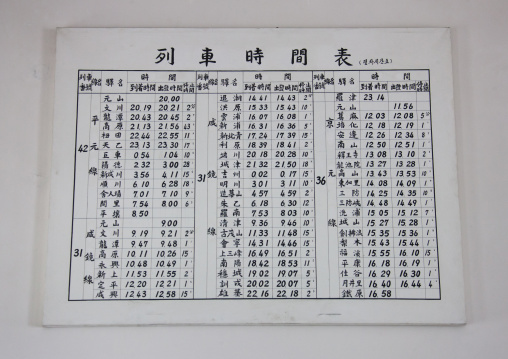 列車時間表
列車番號 線名 驛名 時間 到着時間 出發時間
42 平元線
元山 20.00
文川 20.19 20.21 2
龍潭 20.43 20.45 2
高原 21.13 21.56 43
22.44 22.55 11
天乙 23.13 23.30 17
巨東 0.54 1.04 10
陽德 2.32 3.00 28
新成川 3.56 4.11 15
順川 6.10 6.28 18
7.01 7.10 9
間里 7.54 8.00 6
平壤 8.50
31 咸鏡線
元山 9.00
文川 9.19 9.21 2
龍潭 9.47 9.48 1
高原 10.11 10.26 15
永興 10.48 10.49 1
新上 11.53 11.55 2
定平 12.20 12.21 1
咸興 12.43 12.58 15
列車番號 線名 驛名 時間 到着時間 出發時間
31 咸鏡線
退潮 14.41 14.43 2
洪原 15.33 15.43 10
雲浦 16.07 16.08 1
新浦 16.31 16.36 5
新北靑 17.24 17.39 15
利原 18.39 18.41 2
端川 20.18 20.28 10
城津 21.32 21.50 18
吉州 0.02 0.17 15
明川 3.01 3.11 10
4.57 4.59 2
朱乙 6.18 6.30 12
羅南 7.53 8.03 10
淸津 9.36 9.46 10
古茂山 11.33 11.48 15
會寧 14.31 14.46 15
上三峰 16.49 16.51 2
南陽 18.42 18.53 11
穩城 19.02 19.07 5
訓戎 20.02 20.07 5
雄基 22.16 22.18 2
列車番號 線名 驛名 時間 到着時間 出發時間
羅津 23.14
36 京元線
元山 11.56
葛麻 12.03 12.08 5
培化 12.18 12.19 1
安邊 12.26 12.34 8
南山 12.50 12.51 1
釋王寺 13.08 13.10 2
龍池院 13.27 13.28 1
高山 13.43 13.53 10
東加里 14.08 14.09 1
三防 14.25 14.35 10
三防峽 14.48 14.49 1
洗浦 15.05 15.12 7
城山 15.27 15.28 1
劍拂浪 15.35 15.36 1
梨木 15.43 15.44 1
福溪 15.55 16.10 15
平康 16.18 16.19 1
佳谷 16.29 16.30 1
月井里 16.40 16.44 4
鐵原 16.58